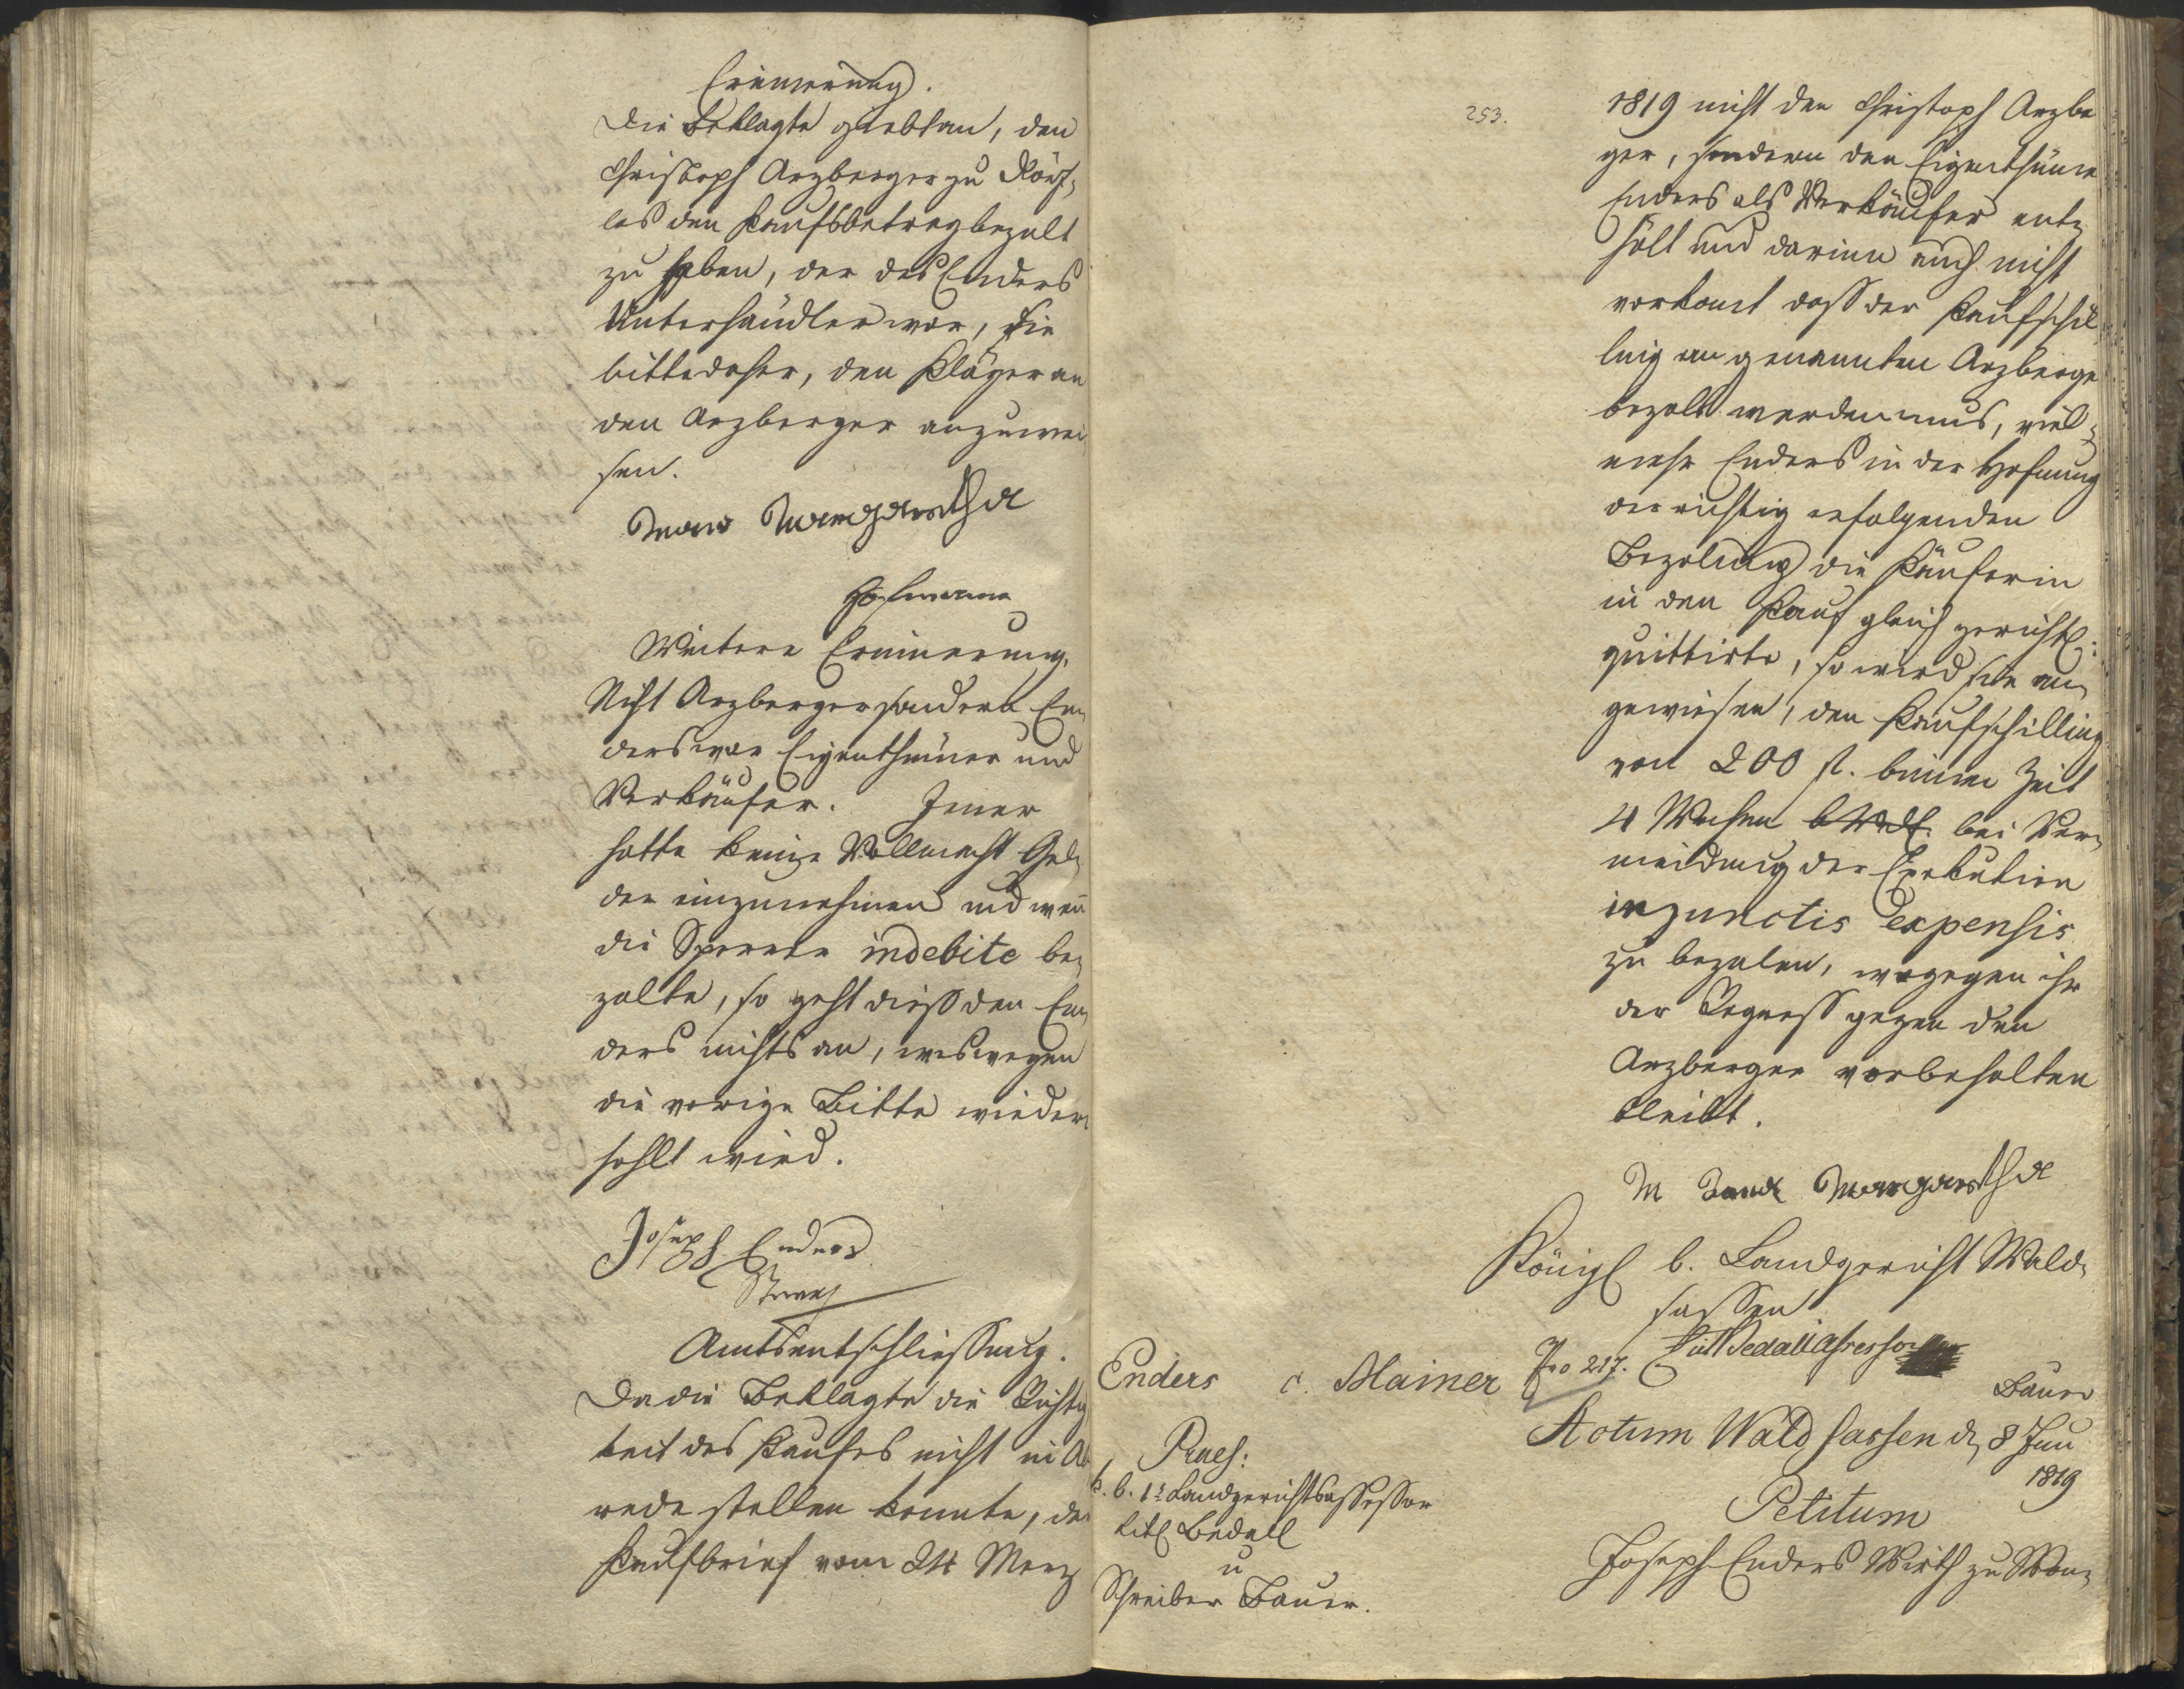 Erinnerung.
Die Beklagte giebt an, den
Christoph Arzberger zu
les den Kaufsbetrag bezalt
zu haben, der des Enders
Unterhändler war, sie
bitte daher, den Kläger an
den Arzberger anzuwei
sen.
Margaretha
Hofmann
Weitere Erinnerung.
Nicht Arzberger sondern En¬
ders war Eigenthümer und
Verkäufer. Jener
hatte keine Vollmacht Gel¬
der einzunehmen und wen̅
die indebite be¬
zalte, so geht dieß den En¬
ders nichts an, weswegen
die vorige Bitte wieder¬
holt wird.
Joseph Enders
Amtsentschliessung.
Da die Beklagte die Richtig
keit des Kaufes nicht in Ab
rede stellen konnte, der
Kaufbrief vom 24 Merz
253.
1819 nicht den Christoph Arzber
ger, sondern den Eigenthümer
Enders als Verkäufer ent¬
hält und darinn auch nicht
vorkomt daß der Kaufschil
ling an genannten Arzberger
bezalt werden mus, viel¬
mehr Enders in der Hofnung
der richtig erfolgenden
Bezalung die Käuferin
in den Kauf gleich gerichtl:
quittirte, so wird sie an¬
gewiesen, den Kaufschilling
von 200 fl. binnen Zeit
4 Wochen bei Ver¬
meidung der Exekution
in punctis expensis
zu bezalen, wogegen ihr
der Regreß gegen den
Arzberger vorbehalten
bleibt.
M Margaretha
Königl b. Landgericht Wald¬
sassen
Bedall Assessor
Bauer
Enders c. Mainer
Nro 217.
Praes:
k. b. 1r Landgerichtsassessor
titl Bedall
u
Schreiber Bauer.
Actum Waldsassen d, 8 Jun
1819
Petitum
Joseph Enders Wirth zu Mon¬